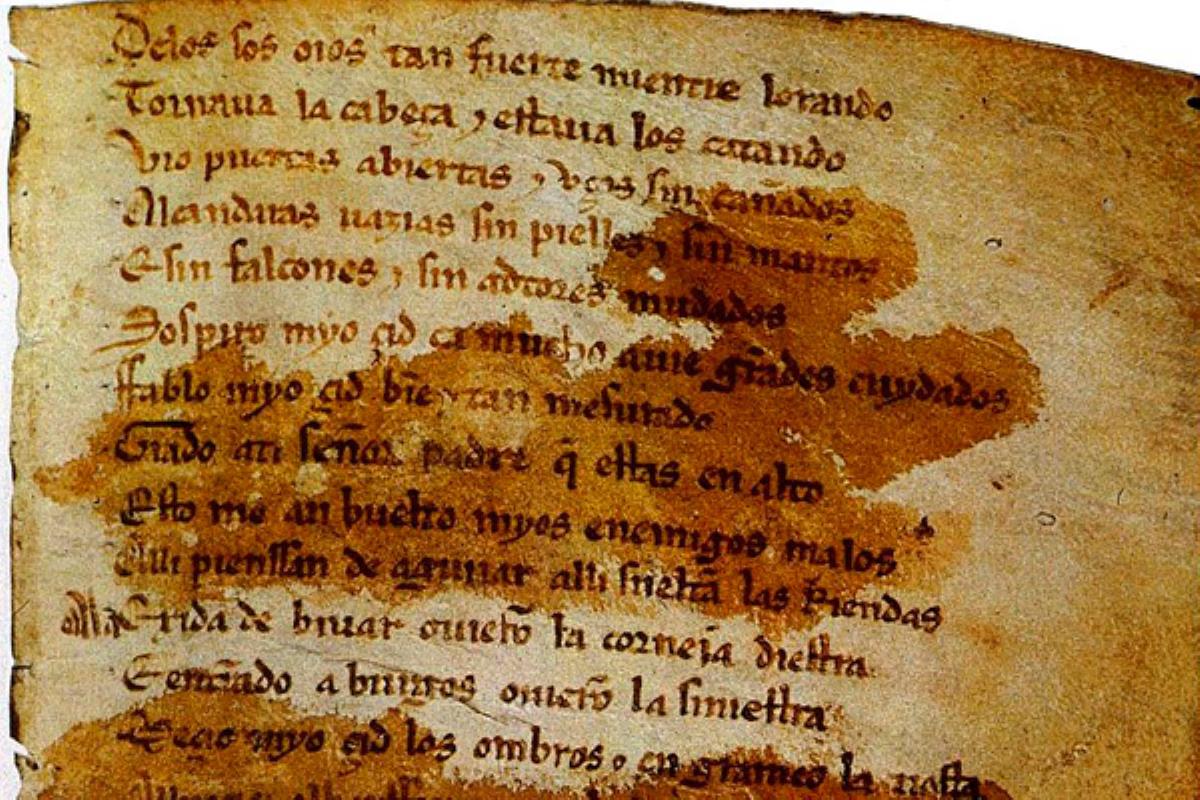 Delos sos oios tan fuerte mientre lorando
Tornaua la cabeça ⁊ estaua los catando
Vio puertas abiertas ⁊ vços sin cañados
Alcandaras uazias sin pielles ⁊ sin mantos
E sin falcones ⁊ sin adtores mudados
Sospiro myo çid ca mucho auie grãdes cuydados
Ffablo myo çid biẽ ⁊ tan mesurado
Grado ati señor padre q̃ estas en alto
Esto me an buelto myos enemigos malos
Alli pienssan de aguiiar alli sueltã las Riendas
Ala Exida de biuar ouierõ la corneia diestra
E entrãdo a burgos ouierõ la siniestra
Meçio myo çid los ombros ⁊ en grameo la tiesta